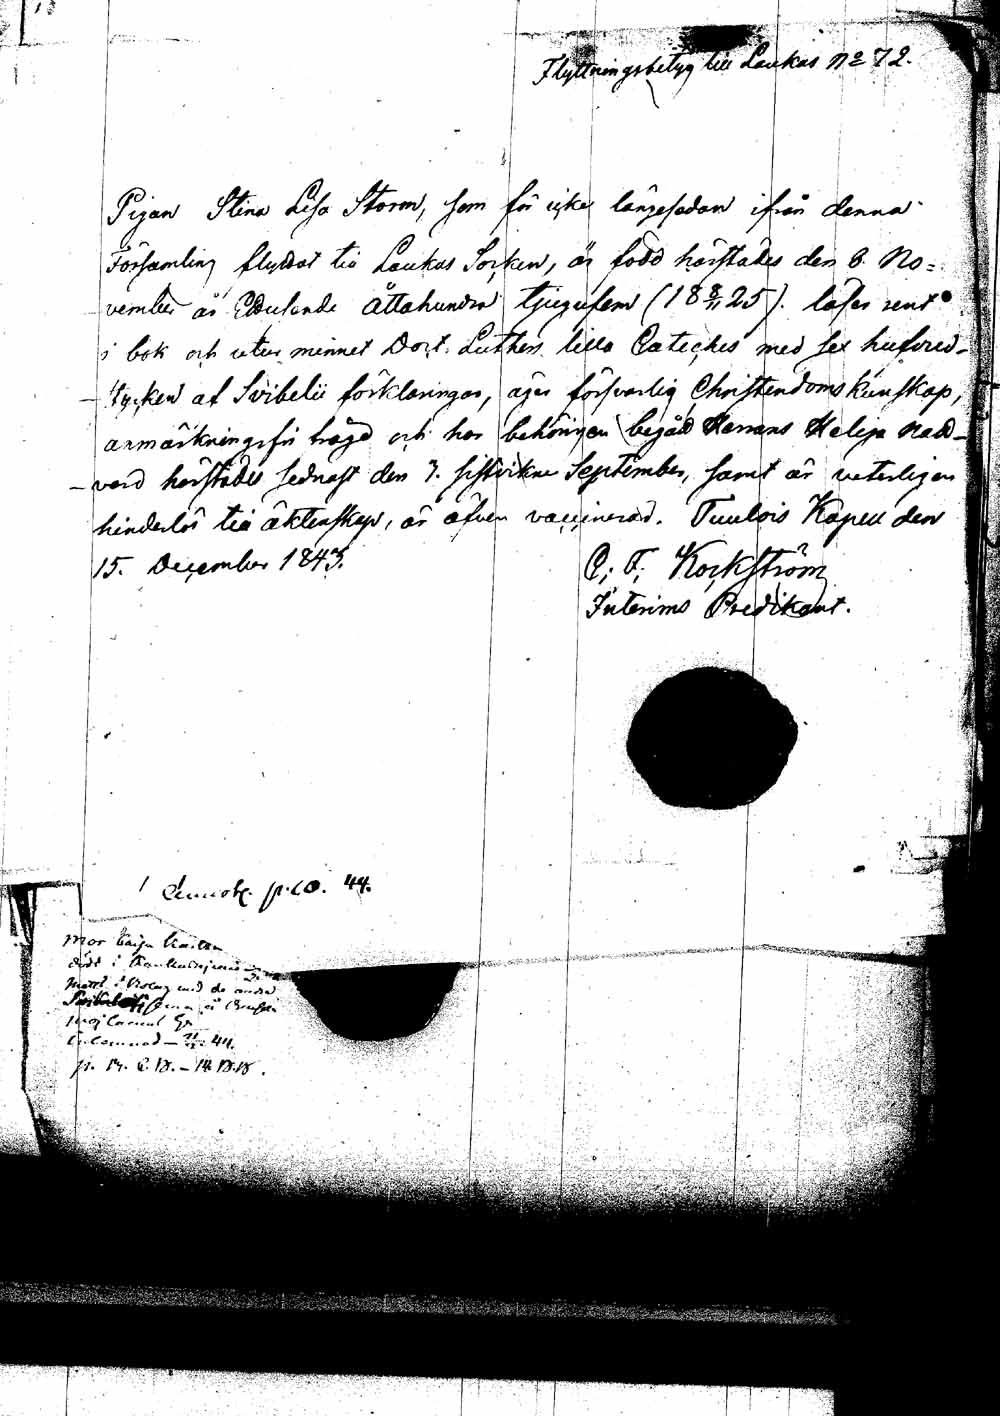 Flyttningsbetyg till Laukas No 72.
Pigan Stina Lisa Storm, som för icke längesedan ifrån denna
Församling flyttat till Laukas Socken, är född härstädes den 8 No=
vember år Ett tusende åttahundra tjugufem (18 8/11 25). läser rent
i bok och utur minnet Doct. Luthers lilla Cateches med sex hufvud-
stycken af Svibelii förklaringar, äger försvarlig Christendoms kunskap,
anmärkningsfri frägd och har behörigen begådt Herrans Heliga Natt-
vard härstädes sednast den 3. sistvikne September, samt är veterligen
hinderlös till äktenskap, är äfven vaccinerad. Tuulois Kapell den
15. December 1843.
C. F. Kockström
Interims Predikant.
Annot. p. 10. 44.
Mor Caisa
död i